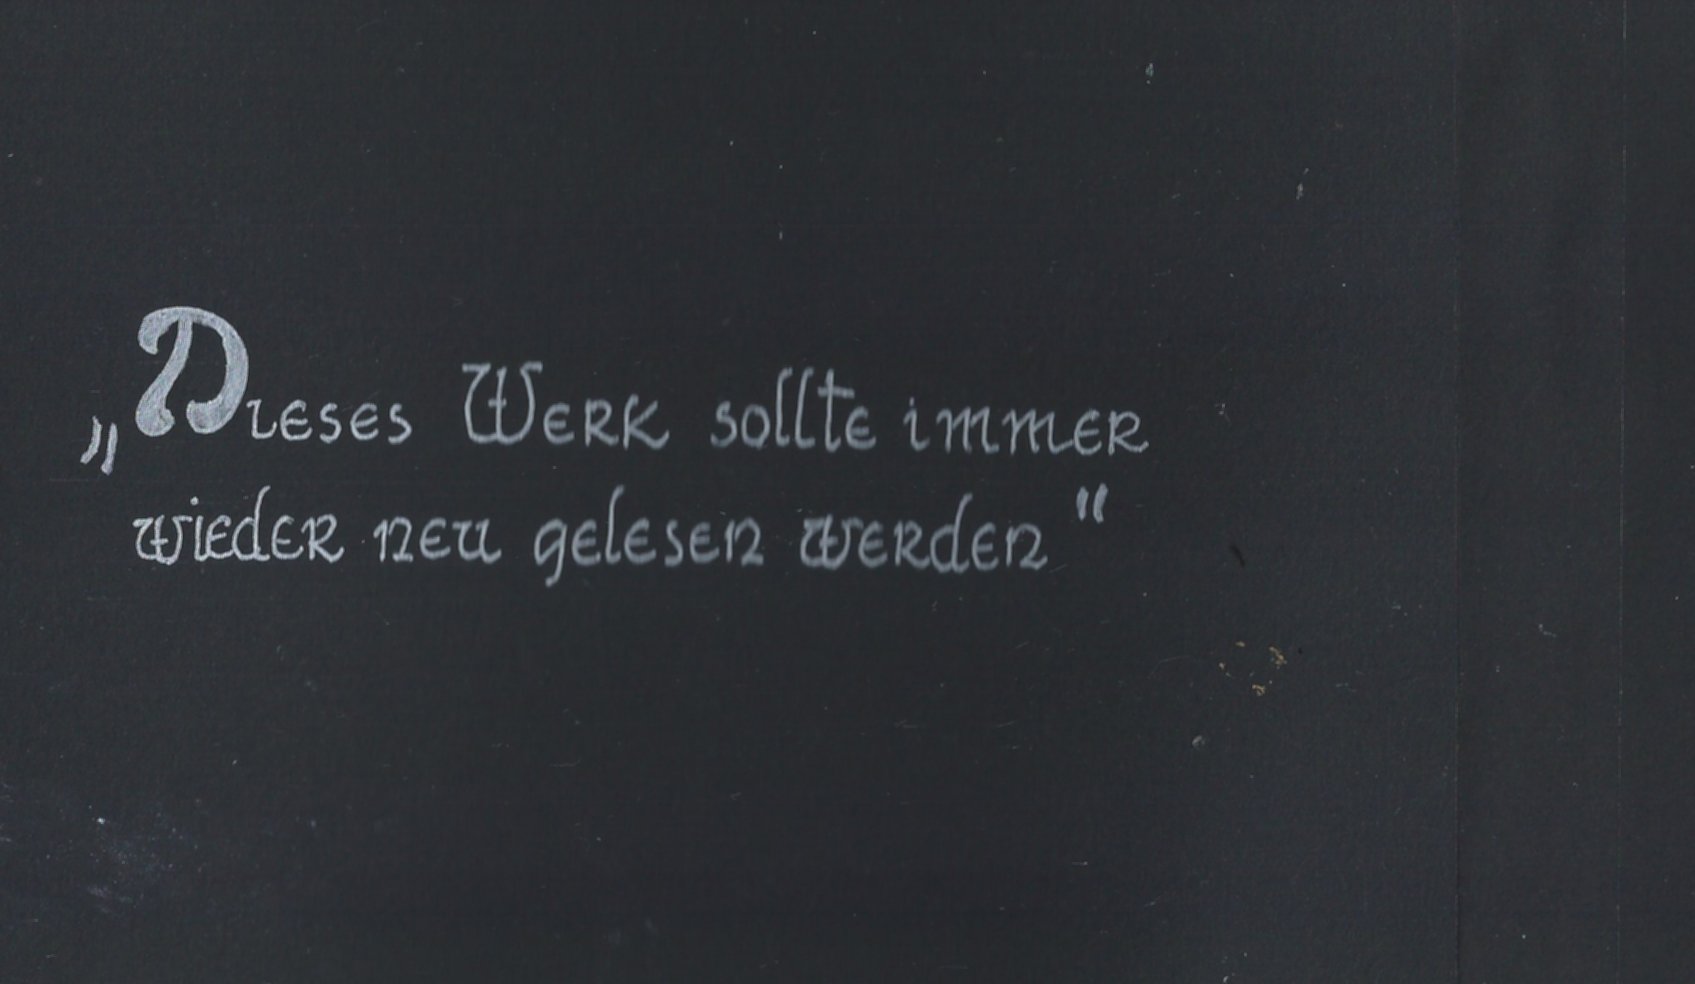 „Dieses Werk sollte immer
wieder neu gelesen werden"